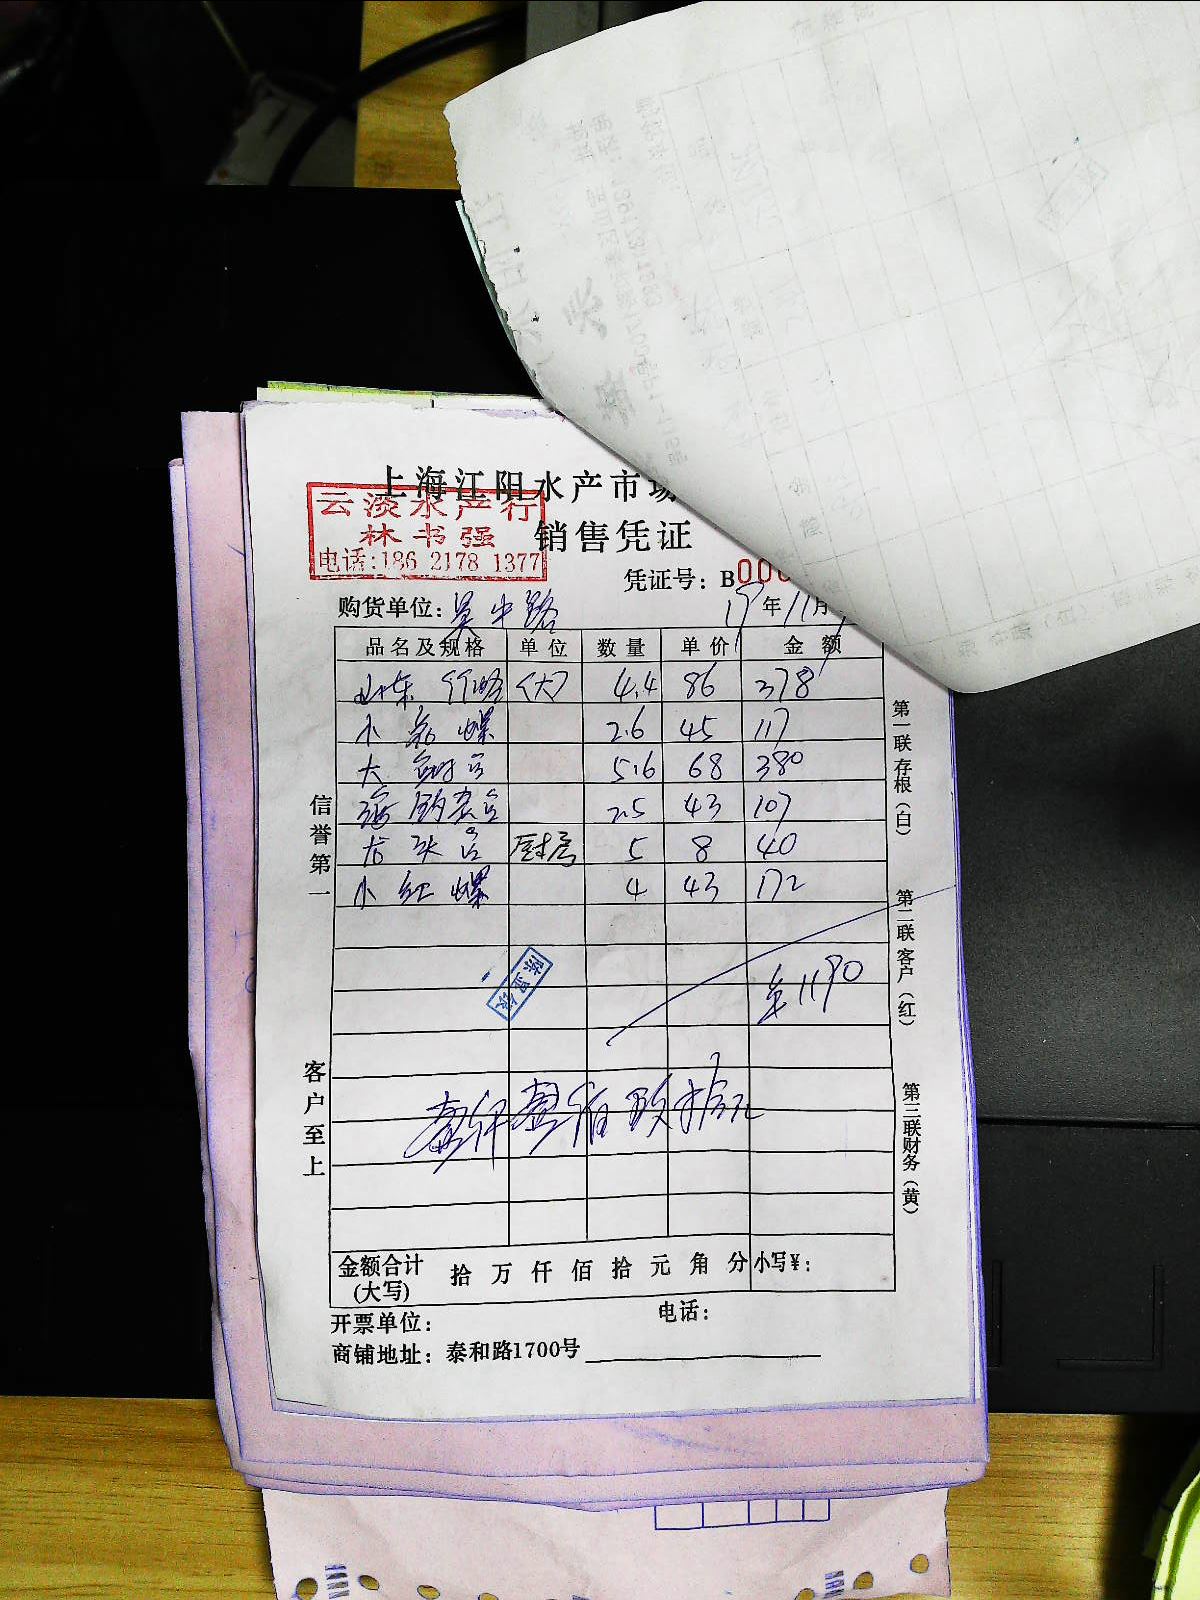 上海江阳水产市场
销售凭证
云淡水产行
林书强
电话:186 2178 1377
凭证号: B00
购货单位: 吴中路
19年11月
品名及规格 单位 数量 单价 金额
山东 (大) 4.4 86 378
小 螺 2.6 45 117
大 5.6 68 380
海 2.5 43 107
龙头 厨房 5 8 40
小红螺 4 43 172
1190
壹仟壹佰玖拾元
信誉第一
客户至上
第一联存根(白)
第二联客户(红)
第三联财务(黄)
金额合计 拾 万 仟 佰 拾 元 角 分 小写¥:
(大写)
开票单位: 电话:
商铺地址: 泰和路1700号